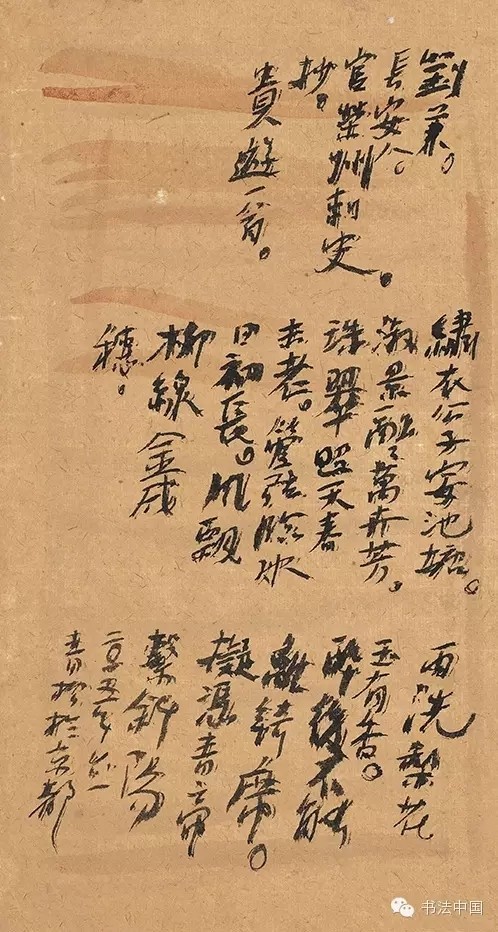 劉兼。
長安人。
官榮州刺史。
抄。
貴遊一首。
繡衣公子宴池塘。
淑景融々萬卉芳。
珠翠照天春
未老。管弦臨水
日初長。風飄
柳線金成
穗。
雨洗梨花
玉有香。
醉後不能
離綺席。
擬憑青帝
繫斜陽
於京都
书法中国